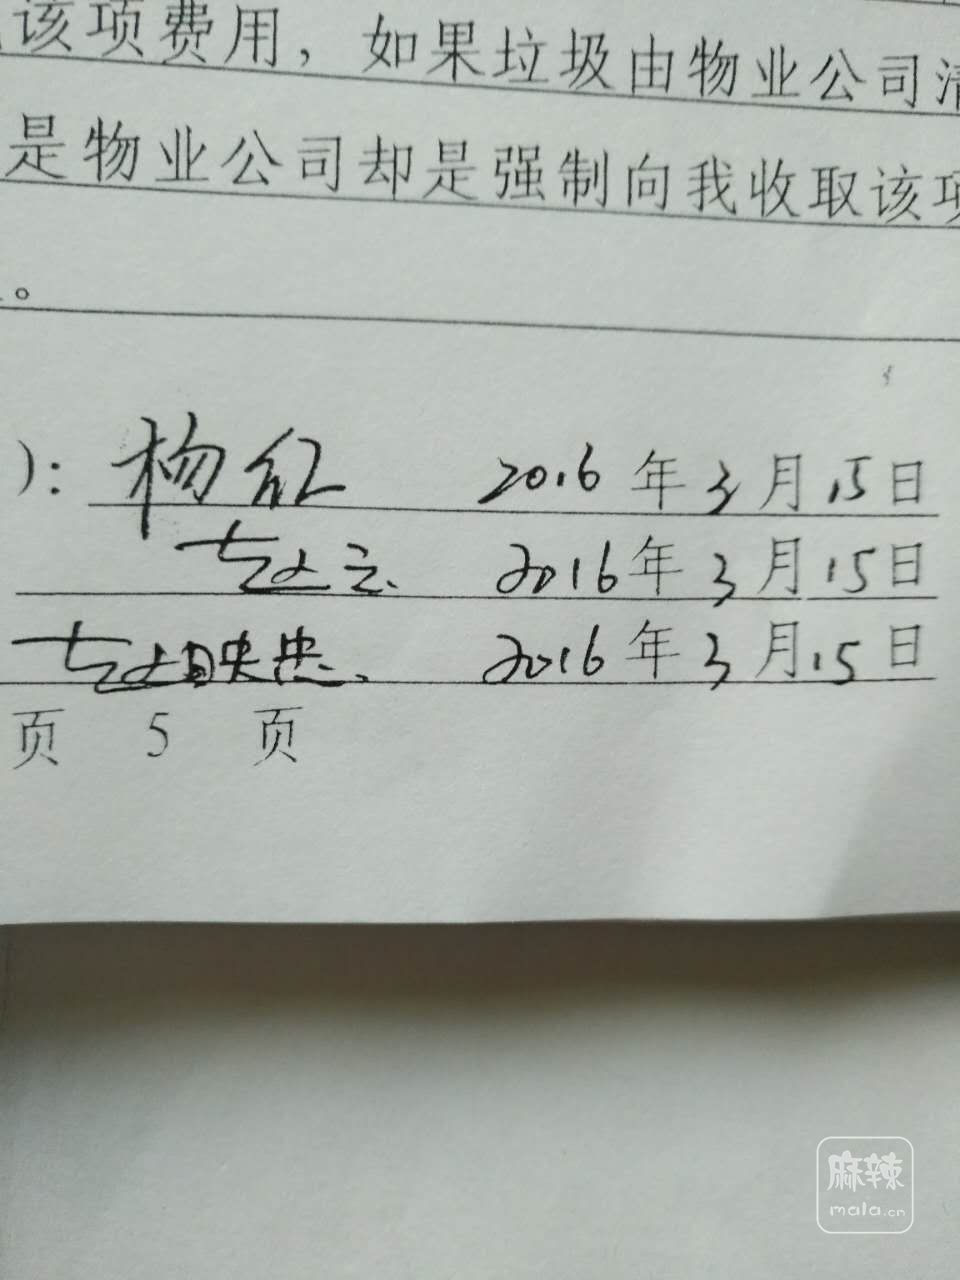 该项费用，如果垃圾由物业公司清
是物业公司却是强制向我收取该项
。
）：杨红 2016年3月15日
2016年3月15日
2016年3月15日
页 5 页
麻辣
mala.cn